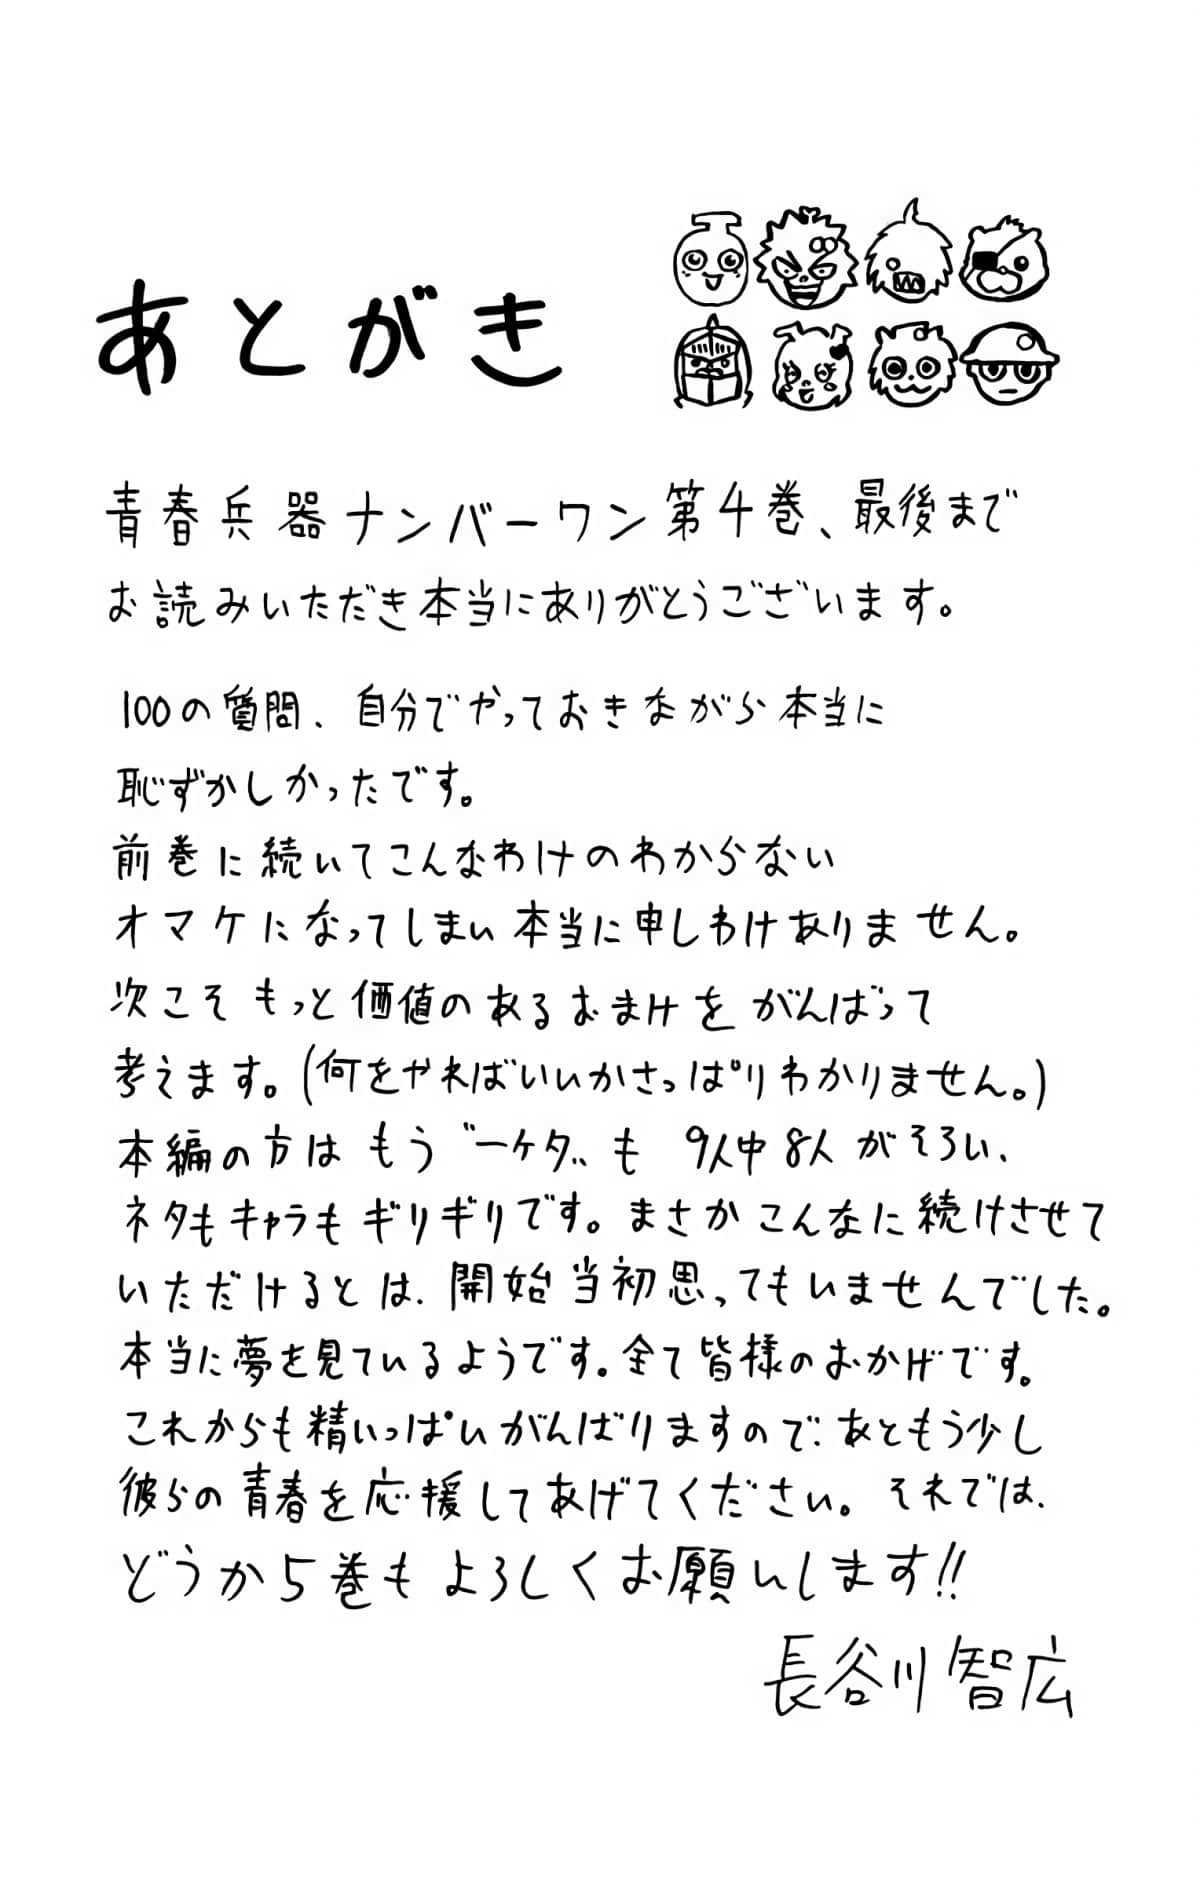 あとがき
青春兵器ナンバーワン第4巻、最後まで
お読みいただき本当にありがとうございます。
100の質問、自分でやっておきながら本当に
恥ずかしかったです。
前巻に続いてこんなわけのわからない
オマケになってしまい本当に申しわけありません。
次こそもっと価値のあるおまけをがんばって
考えます。(何をやればいいかさっぱりわかりません。)
本編の方はもうゼーゲタも9人中8人がそろい、
ネタもキャラもギリギリです。まさかこんなに続けさせて
いただけるとは、開始当初思ってもいませんでした。
本当に夢を見ているようです。全て皆様のおかげです。
これからも精いっぱいがんばりますので、あともう少し
彼らの青春を応援してあげてください。それでは、
どうか5巻もよろしくお願いします!!
長谷川智広